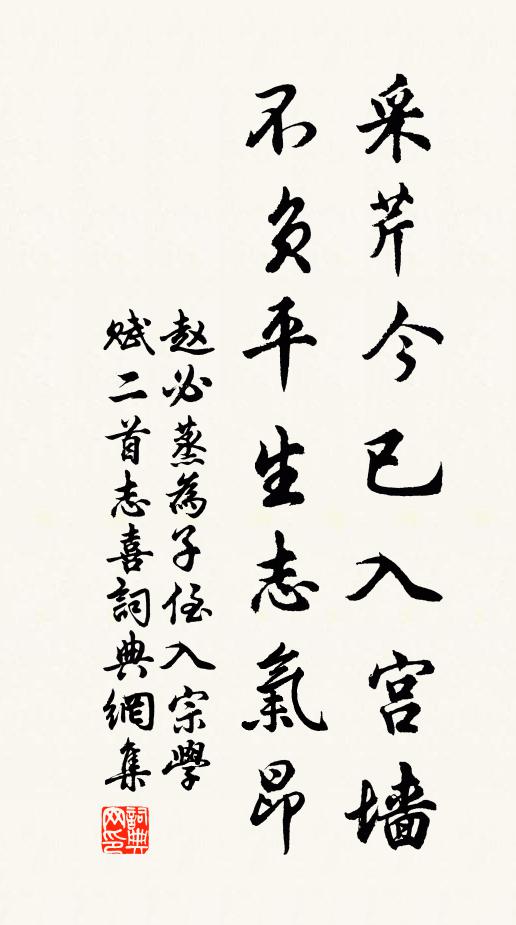 采芹今已入宫墙
不负平生志氣昂
赵必蒸為子侄入宗學
賦二首志喜詞典網集
詞典
网印